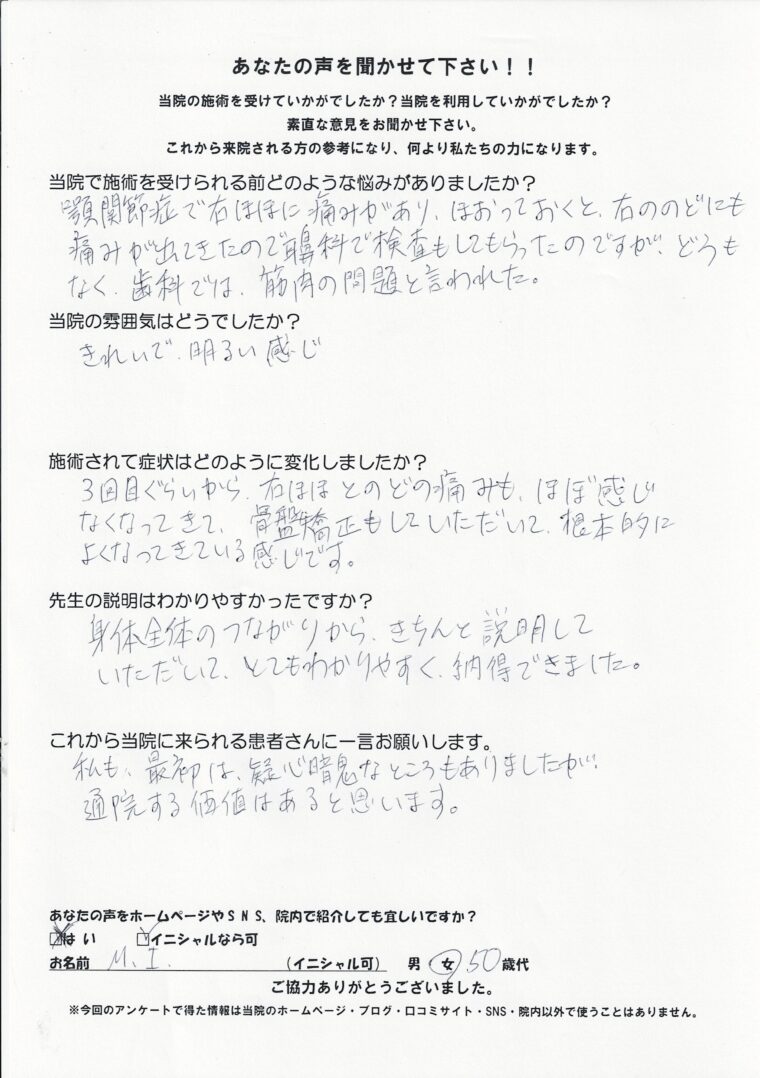 あなたの声を聞かせて下さい！！
当院の施術を受けていかがでしたか？当院を利用していかがでしたか？
素直な意見をお聞かせ下さい。
これから来院される方の参考になり、何より私たちの力になります。
当院で施術を受けられる前どのような悩みがありましたか？
顎関節症で右ほほに痛みがあり、ほおっておくと、右ののどにも
痛みが出てきたので耳鼻科で検査もしてもらったのですが、どうも
なく、歯科では、筋肉の問題と言われた。
当院の雰囲気はどうでしたか？
きれいで、明るい感じ
施術されて症状はどのように変化しましたか？
3回目ぐらいから、右ほほとのどの痛みも、ほぼ感じ
なくなってきて、骨盤矯正もしていただいて、根本的に
よくなってきている感じです。
先生の説明はわかりやすかったですか？
身体全体のつながりから、きちんと説明して
いただいて、とてもわかりやすく、納得できました。
これから当院に来られる患者さんに一言お願いします。
私も、最初は、疑心暗鬼なところもありましたが、
通院する価値はあると思います。
あなたの声をホームページやSNS、院内で紹介しても宜しいですか？
はい　イニシャルなら可
お名前 M. I. （イニシャル可） 男 女 50歳代
ご協力ありがとうございました。
※今回のアンケートで得た情報は当院のホームページ・ブログ・口コミサイト・SNS・院内以外で使うことはありません。